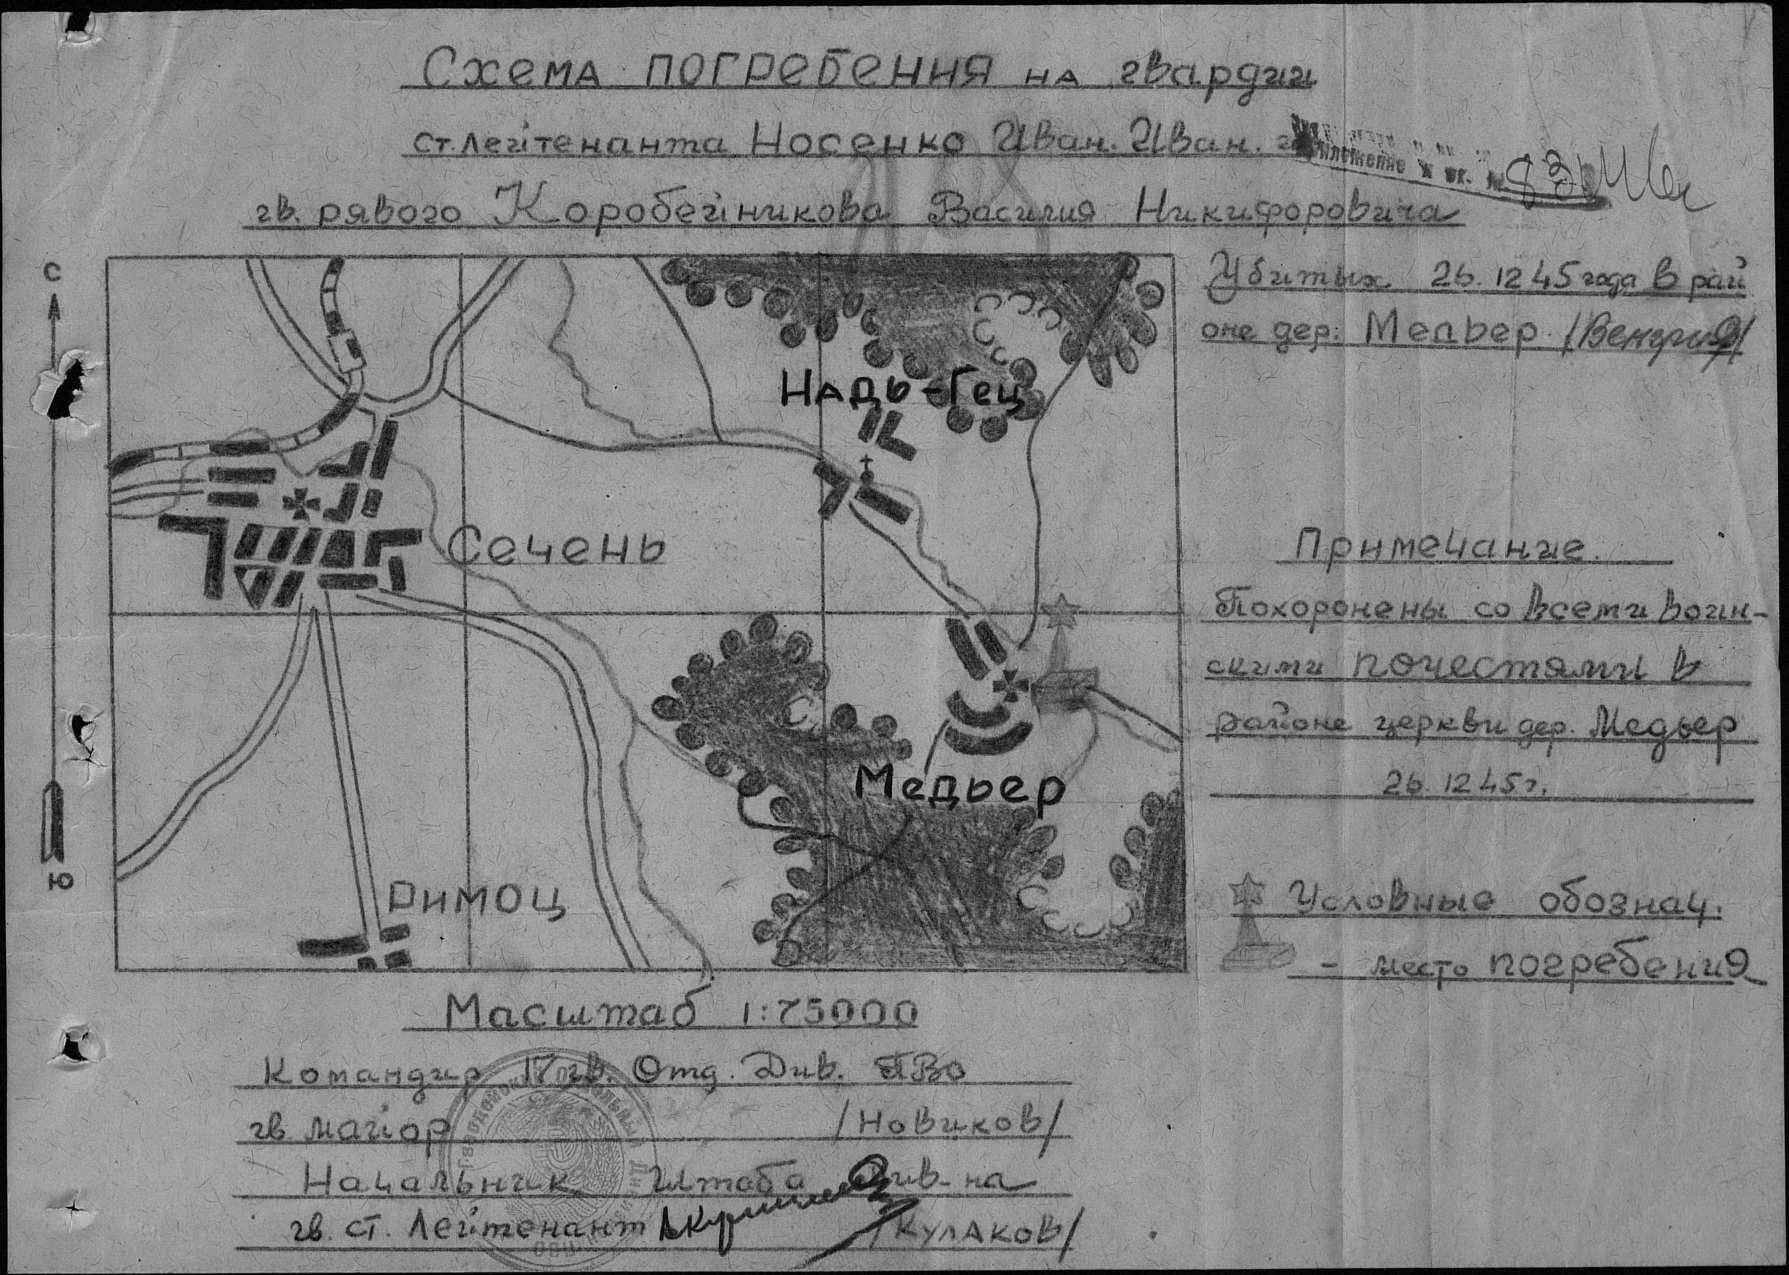 Схема погребения на гвардии
ст. лейтенанта Носенко Иван. Иван.
гв. рявого Коробейникова Василия Никифоровича
Убитых 26.12 45 года в рай
оне дер: Медьер /Венгрия/
С
Надь-Гец
Сечень
Примечание.
Похоронены со всеми воин-
скими почестями в
районе церкви дер. Медьер
26.12 45 г.
Медьер
Ю
Римоц
Условные обознач.
- место погребения
Масштаб 1:75000
Командир гв. Отд. Див. ПВО
гв майор /Новиков/
Начальник Штаба Див-на
гв. ст. Лейтенант /Кулаков/